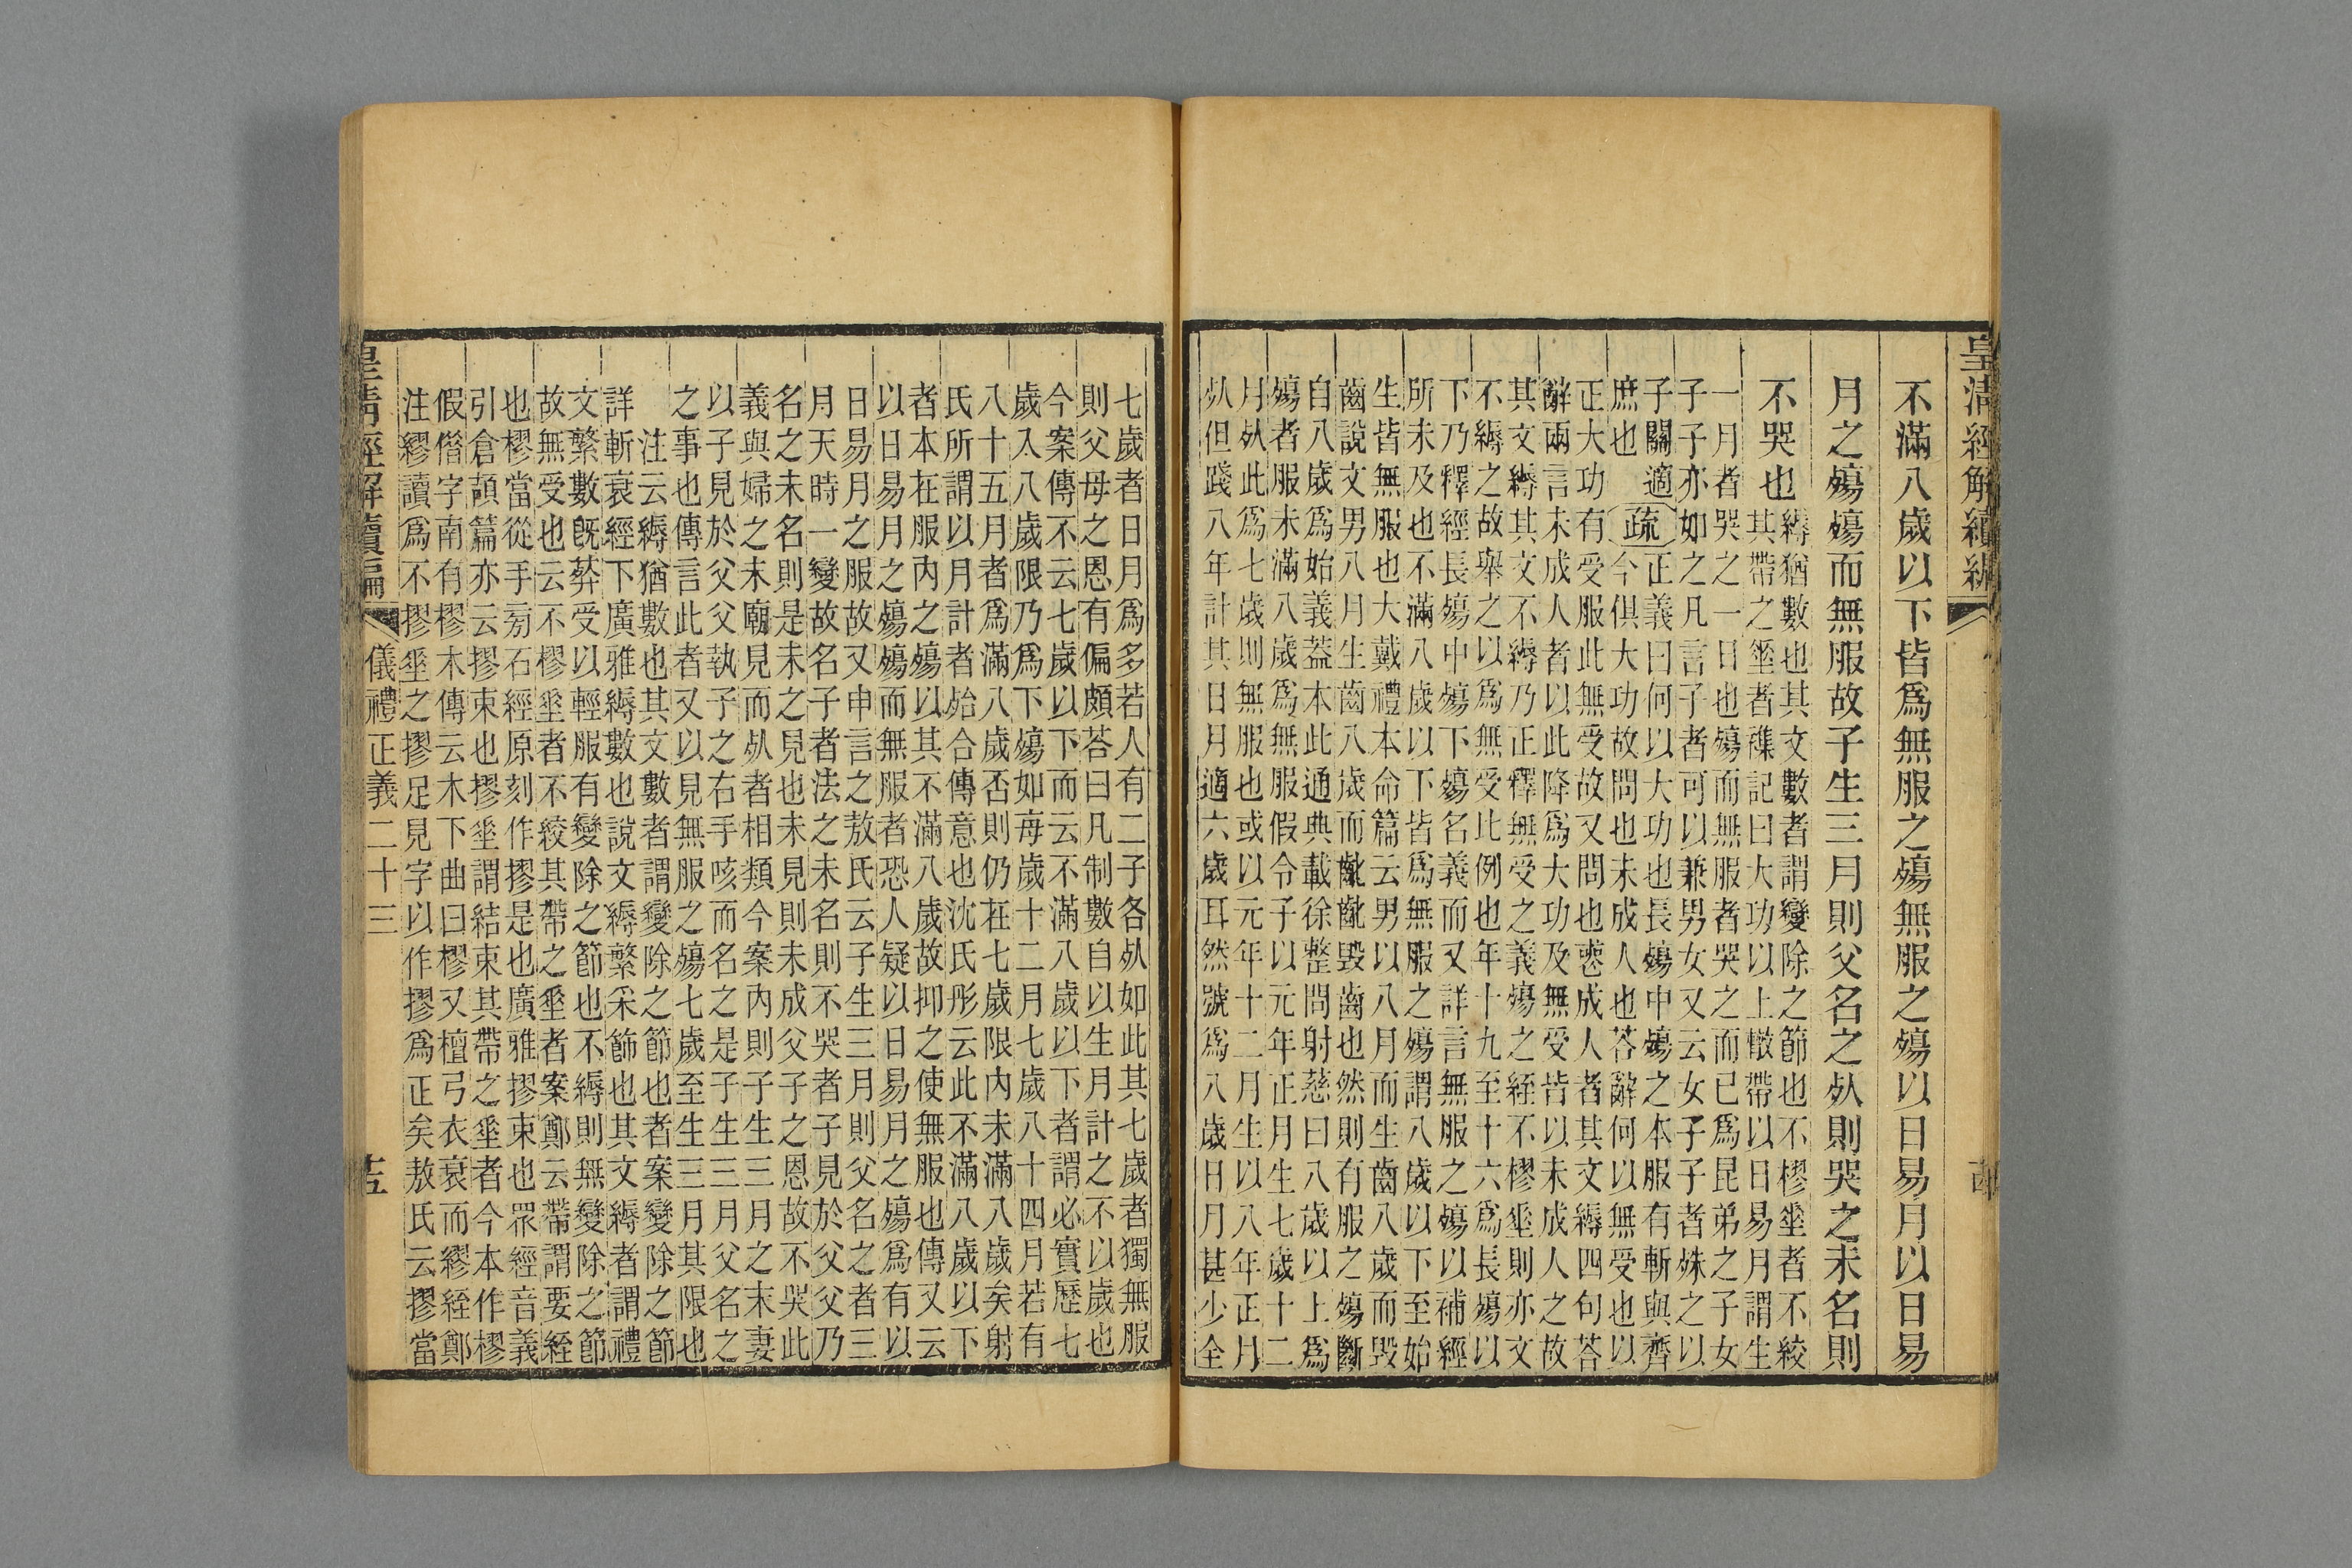 皇清經解續編
不滿八歲以下皆爲無服之殤無服之殤以日易月以日易
月之殤殤而無服故子生三月則父名之死則哭之未名則
不哭也
縟猶數也其文數者謂變除之節也不樛垂者不絞
其帶之垂者雜記曰大功以上散帶以日易月謂生
一月者哭之一日也殤而無服者哭之而已爲昆弟之子女
子子亦如之凡言子者可以兼男女又云女子子者殊之以
子關適
庶也
疏
正義曰何以大功也長殤中殤之本服有斬與齊
今俱大功故問也未成人也荅辭何以無受也以
正大功有受服此無受故又問也成人者其文縟四句荅
辭兩言未成人者以此降爲大功及無受皆以未成人之故
其文縟其文不縟乃正釋無受之義殤之絰不樛垂則亦文
不縟之故舉之以爲無受此例也年十九至十六爲長殤以
下乃釋經長殤中殤下殤名義而又詳言無服之殤以補經
所未及也不滿八歲以下皆爲無服之殤謂八歲以下至始
生皆無服也大戴禮本命篇云男以八月而生齒八歲而毀
齒說文男八月生齒八歲而齔齔毀齒也然則有服之殤斷
自八歲爲始義蓋本此通典載徐整問射慈曰八歲以上爲
殤者服未滿八歲爲無服假令子以元年正月生七歲十二
月死此爲七歲則無服也或以元年十二月生以八年正月
死但踐八年計其日月適六歲耳然號爲八歲日月甚少全
七歲者日月爲多若人有二子各死如此其七歲者獨無服
則父母之恩有偏頗荅曰凡制數自以生月計之不以歲也
今案傳不云七歲以下而云不滿八歲以下者謂必實歷七
歲入八歲限乃爲下殤如每歲十二月七歲八十四月若有
八十五月者爲滿八歲否則仍在七歲限內未滿八歲矣射
氏所謂以月計者始合傳意也沈氏彤云此不滿八歲以下
者本在服內之殤以其不滿八歲故抑之使無服也傳又云
以日易月之殤殤而無服者恐人疑以日易月之殤爲有以
日易月之服故又申言之敖氏云子生三月則父名之者三
月天時一變故名子者法之未名則不哭者子見於父父乃
名之未名則是未之見也未見則未成父子之恩故不哭此
義與婦之未廟見而死者相類今案內則子生三月之末妻
以子見於父父執子之右手咳而名之是子生三月父名之
之事也傳言此者又以見無服之殤七歲至生三月其限也
注云縟猶數也其文數者謂變除之節也者案變除之節
詳斬衰絰下廣雅縟數也說文縟繁采飾也其文縟者謂禮
文繁數旣葬受以輕服有變除之節也不縟則無變除之節
故無受也云不樛垂者不絞其帶之垂者案鄭云帶謂要絰
也樛當從手旁石經原刻作摎是也廣雅摎束也眾經音義
引倉頡篇亦云摎束也摎垂謂結束其帶之垂者今本作樛
假僭字南有樛木傳云木下曲曰樛又檀弓衣衰而繆絰鄭
注繆讀爲不摎垂之摎足見字以作摎爲正矣敖氏云摎當
皇清經解續編 儀禮正義二十三 十五